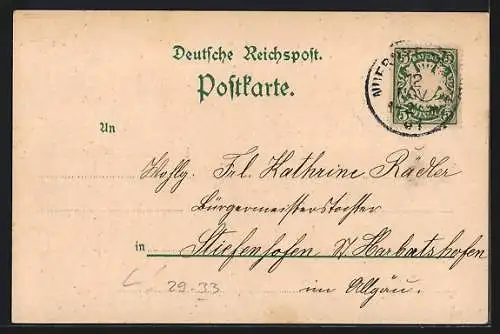 Deutsche Reichspost.
Postkarte.
5 BAYERN 5
An
Wohlg. Frl. Kathrine Rädler
Bürgermeisterstochter
in Stiefenhofen P/ Harbatshofen
im Allgäu.
29-33